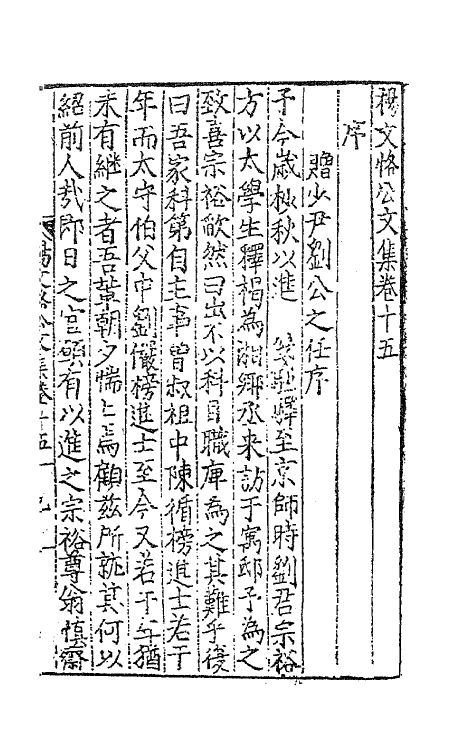 楊文恪公文集卷十五
序
贈少尹劉公之任序
予今歲杪秋以進 驛至京師時劉君宗裕
方以太學生釋褐為湘鄉丞来訪于寓邸予為之
致喜宗裕歉然曰出不以科目職庳為之其難乎復
曰吾家科第自主事曾叔祖中陳循榜進士若干
年而太守伯父中劉儼榜進士至今又若干年猶
未有継之者吾輩朝夕惴惴焉顧茲所就其何以
紹前人哉即日之官願有以進之宗裕尊翁慎齋
楊文恪公文集卷十五